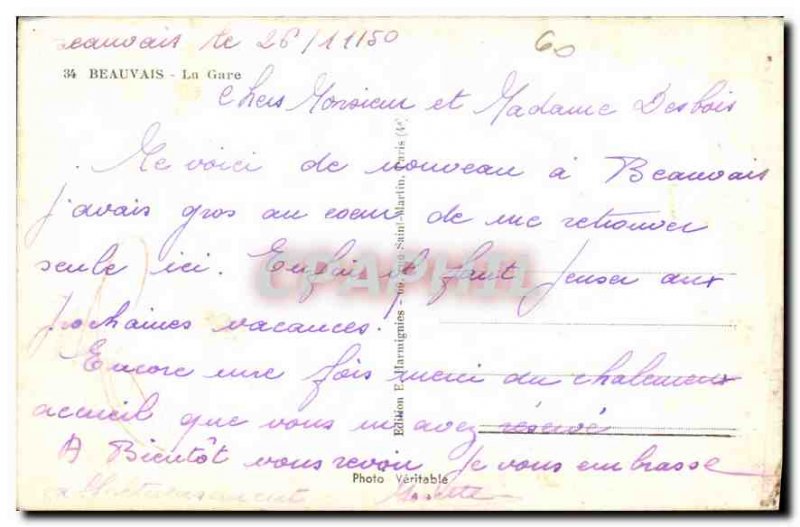 Beauvais le 26/11/50
60
34 BEAUVAIS - La Gare
Chers Monsieur et Madame Desbois
Me voici de nouveau à Beauvais
j'avais gros au coeur de me retrouver
seule ici. Enfin il faut penser aux
prochaines vacances.
Encore une fois merci du chaleureux
accueil que vous m'avez réservé
A Bientôt vous revoir Je vous embrasse
Affectueusement
Edition E. Harmignies - Rue Saint-Martin, Paris (4e)
CPAPHIL
Photo Véritable